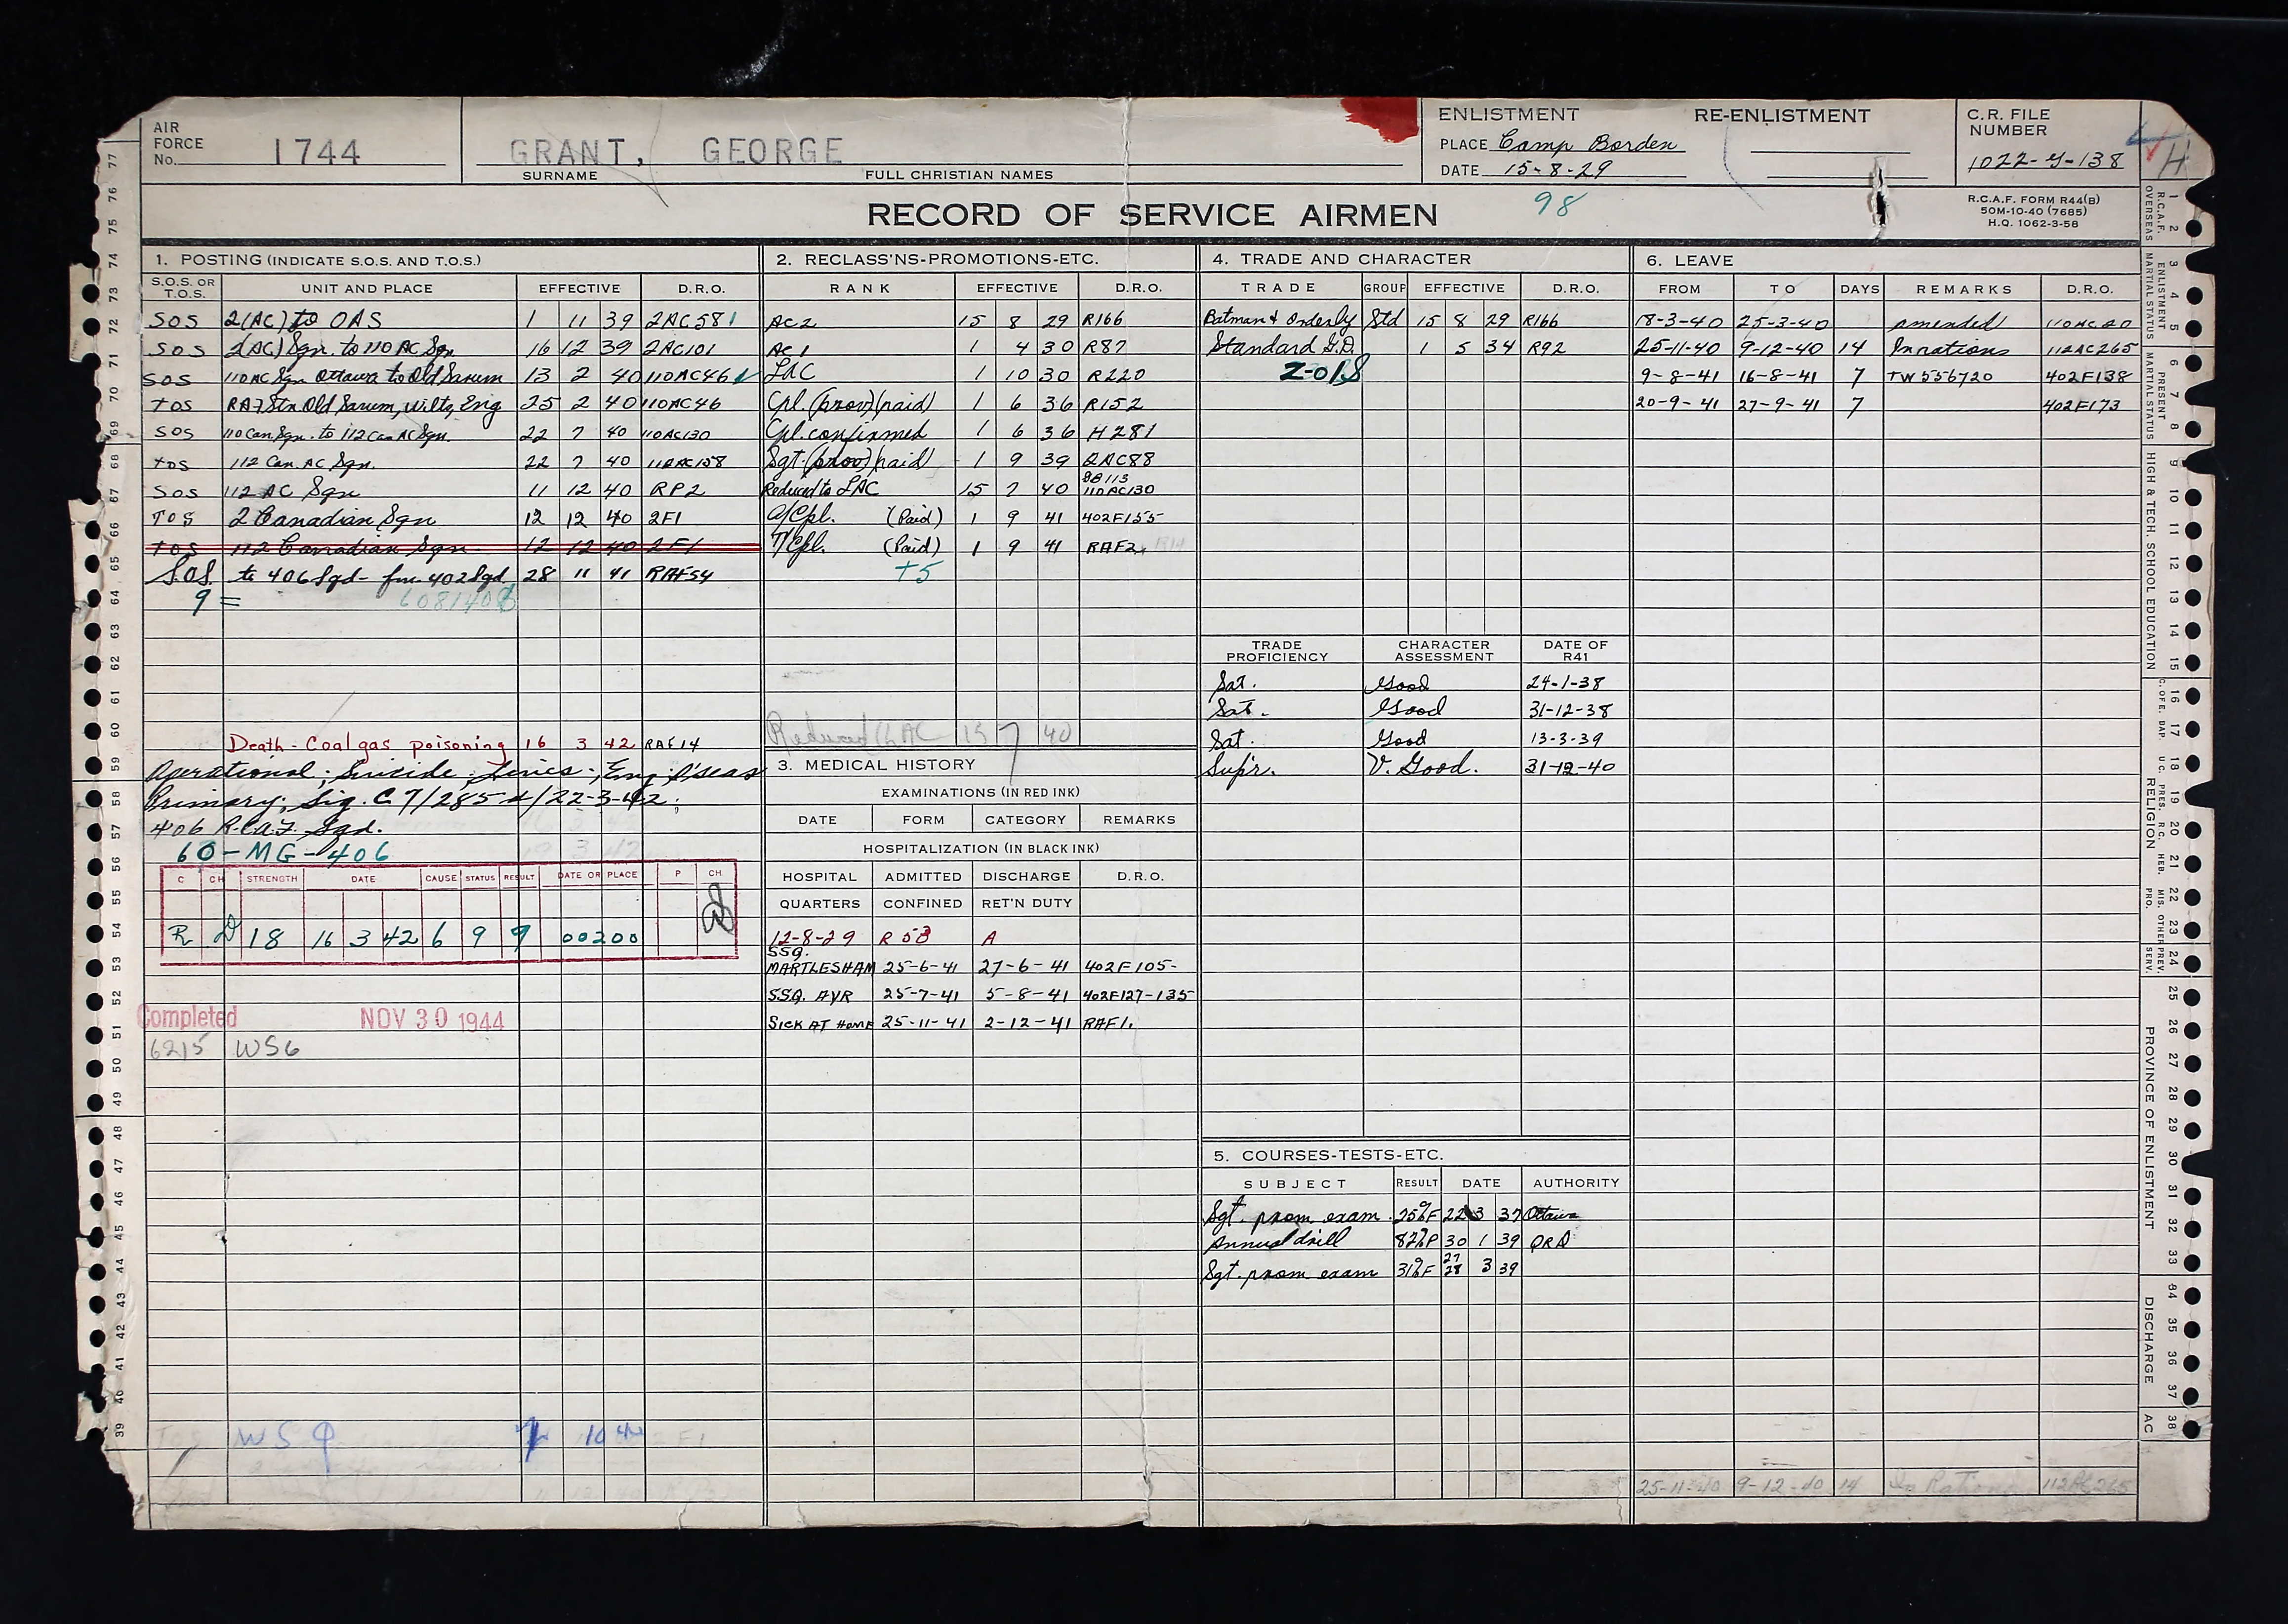 AIR FORCE No. 1744
GRANT, GEORGE
SURNAME FULL CHRISTIAN NAMES
ENLISTMENT RE-ENLISTMENT
PLACE Camp Borden
DATE 15-8-29
C.R. FILE NUMBER
1022-G-138
H
RECORD OF SERVICE AIRMEN
98
R.C.A.F. FORM R44(B)
50M-10-40 (7685)
H.Q. 1062-3-58
1. POSTING (INDICATE S.O.S. AND T.O.S.)
S.O.S. OR T.O.S. UNIT AND PLACE EFFECTIVE D.R.O.
SOS 2(AC) to OAS 1 11 39 2AC581
SOS 2(AC) Sqn. to 110 AC Sqn 16 12 39 2AC101
SOS 110 AC Sqn Ottawa to Old Sarum 13 2 40 110AC46
TOS RAF Stn Old Sarum, Wilts, Eng 25 2 40 110AC46
SOS 110 Can Sqn. to 112 Can AC Sqn. 22 7 40 110AC130
TOS 112 Can. AC Sqn. 22 7 40 112AC158
SOS 112 AC Sqn 11 12 40 RP2
TOS 2 Canadian Sqn 12 12 40 2F1
TOS 112 Canadian Sqn 12 12 40 2F1
S.O.S. to 406 Sqd - fm 402 Sqd. 28 11 41 RAF54
9 =
Death - Coal gas poisoning 16 3 42 RAF14
Operational; Suicide;
Primary; Sig. C7/285 d/22-3-42;
406 R.C.A.F. Sqd.
60-MG-406
C CH STRENGTH DATE CAUSE STATUS RESULT DATE OR PLACE P CH
R D 18 16 3 42 6 9 9 00200
Completed NOV 30 1944
6215 WS6
WS 10
2. RECLASS'NS-PROMOTIONS-ETC.
RANK EFFECTIVE D.R.O.
AC2 15 8 29 R166
AC1 1 4 30 R87
LAC 1 10 30 R220
Cpl. (prov) (paid) 1 6 36 R152
Cpl. confirmed 1 6 36 H281
Sgt. (prov) (paid) 1 9 39 2AC88
Reduced to LAC 15 7 40 110AC130
A/Cpl. (Paid) 1 9 41 402F155
T/Cpl. (Paid) 1 9 41 RAF2,
+5
Reduced LAC 15 7 40
3. MEDICAL HISTORY
EXAMINATIONS (IN RED INK)
DATE FORM CATEGORY REMARKS
HOSPITALIZATION (IN BLACK INK)
HOSPITAL ADMITTED DISCHARGE D.R.O.
QUARTERS CONFINED RET'N DUTY
12-8-29 R 53 A
SSQ.
MARTLESHAM 25-6-41 27-6-41 402F105-
SSQ. AYR 25-7-41 5-8-41 402F127-135
SICK AT HOME 25-11-41 2-12-41 RAF1.
4. TRADE AND CHARACTER
TRADE GROUP EFFECTIVE D.R.O.
Batman & Orderly Std 15 8 29 R166
Standard G.D. 1 5 34 R92
Z-018
TRADE PROFICIENCY CHARACTER ASSESSMENT DATE OF R41
Sat. Good 24-1-38
Sat. Good 31-12-38
Sat. Good 13-3-39
Sup'r. V. Good. 31-12-40
5. COURSES-TESTS-ETC.
SUBJECT RESULT DATE AUTHORITY
Sgt. prom. exam. 25%F 22 3 37 Ottawa
Annual drill 82%P 30 1 39 ORD
Sgt. prom exam 31%F 27 28 3 39
6. LEAVE
FROM TO DAYS REMARKS D.R.O.
18-3-40 25-3-40 amended 110AC80
25-11-40 9-12-40 14 In rations 112AC265
9-8-41 16-8-41 7 TW556720 402F138
20-9-41 27-9-41 7 402F173
25-11-40 9-12-40 14 In Rations 112AC265
77 76 75 74 73 72 71 70 69 68 67 66 65 64 63 62 61 60 59 58 57 56 55 54 53 52 51 50 49 48 47 46 45 44 43 42 41 40 39
1 2 3 4 5 6 7 8 9 10 11 12 13 14 15 16 17 18 19 20 21 22 23 24 25 26 27 28 29 30 31 32 33 34 35 36 37 38
R.C.A.F. OVERSEAS
ENLISTMENT MARTIAL STATUS
PRESENT MARTIAL STATUS
HIGH & TECH. SCHOOL EDUCATION
C. OF E. BAP. U.C. PRES. R.C. HEB. MIS. PRO. OTHER
RELIGION
PREV. SERV.
PROVINCE OF ENLISTMENT
DISCHARGE
AC